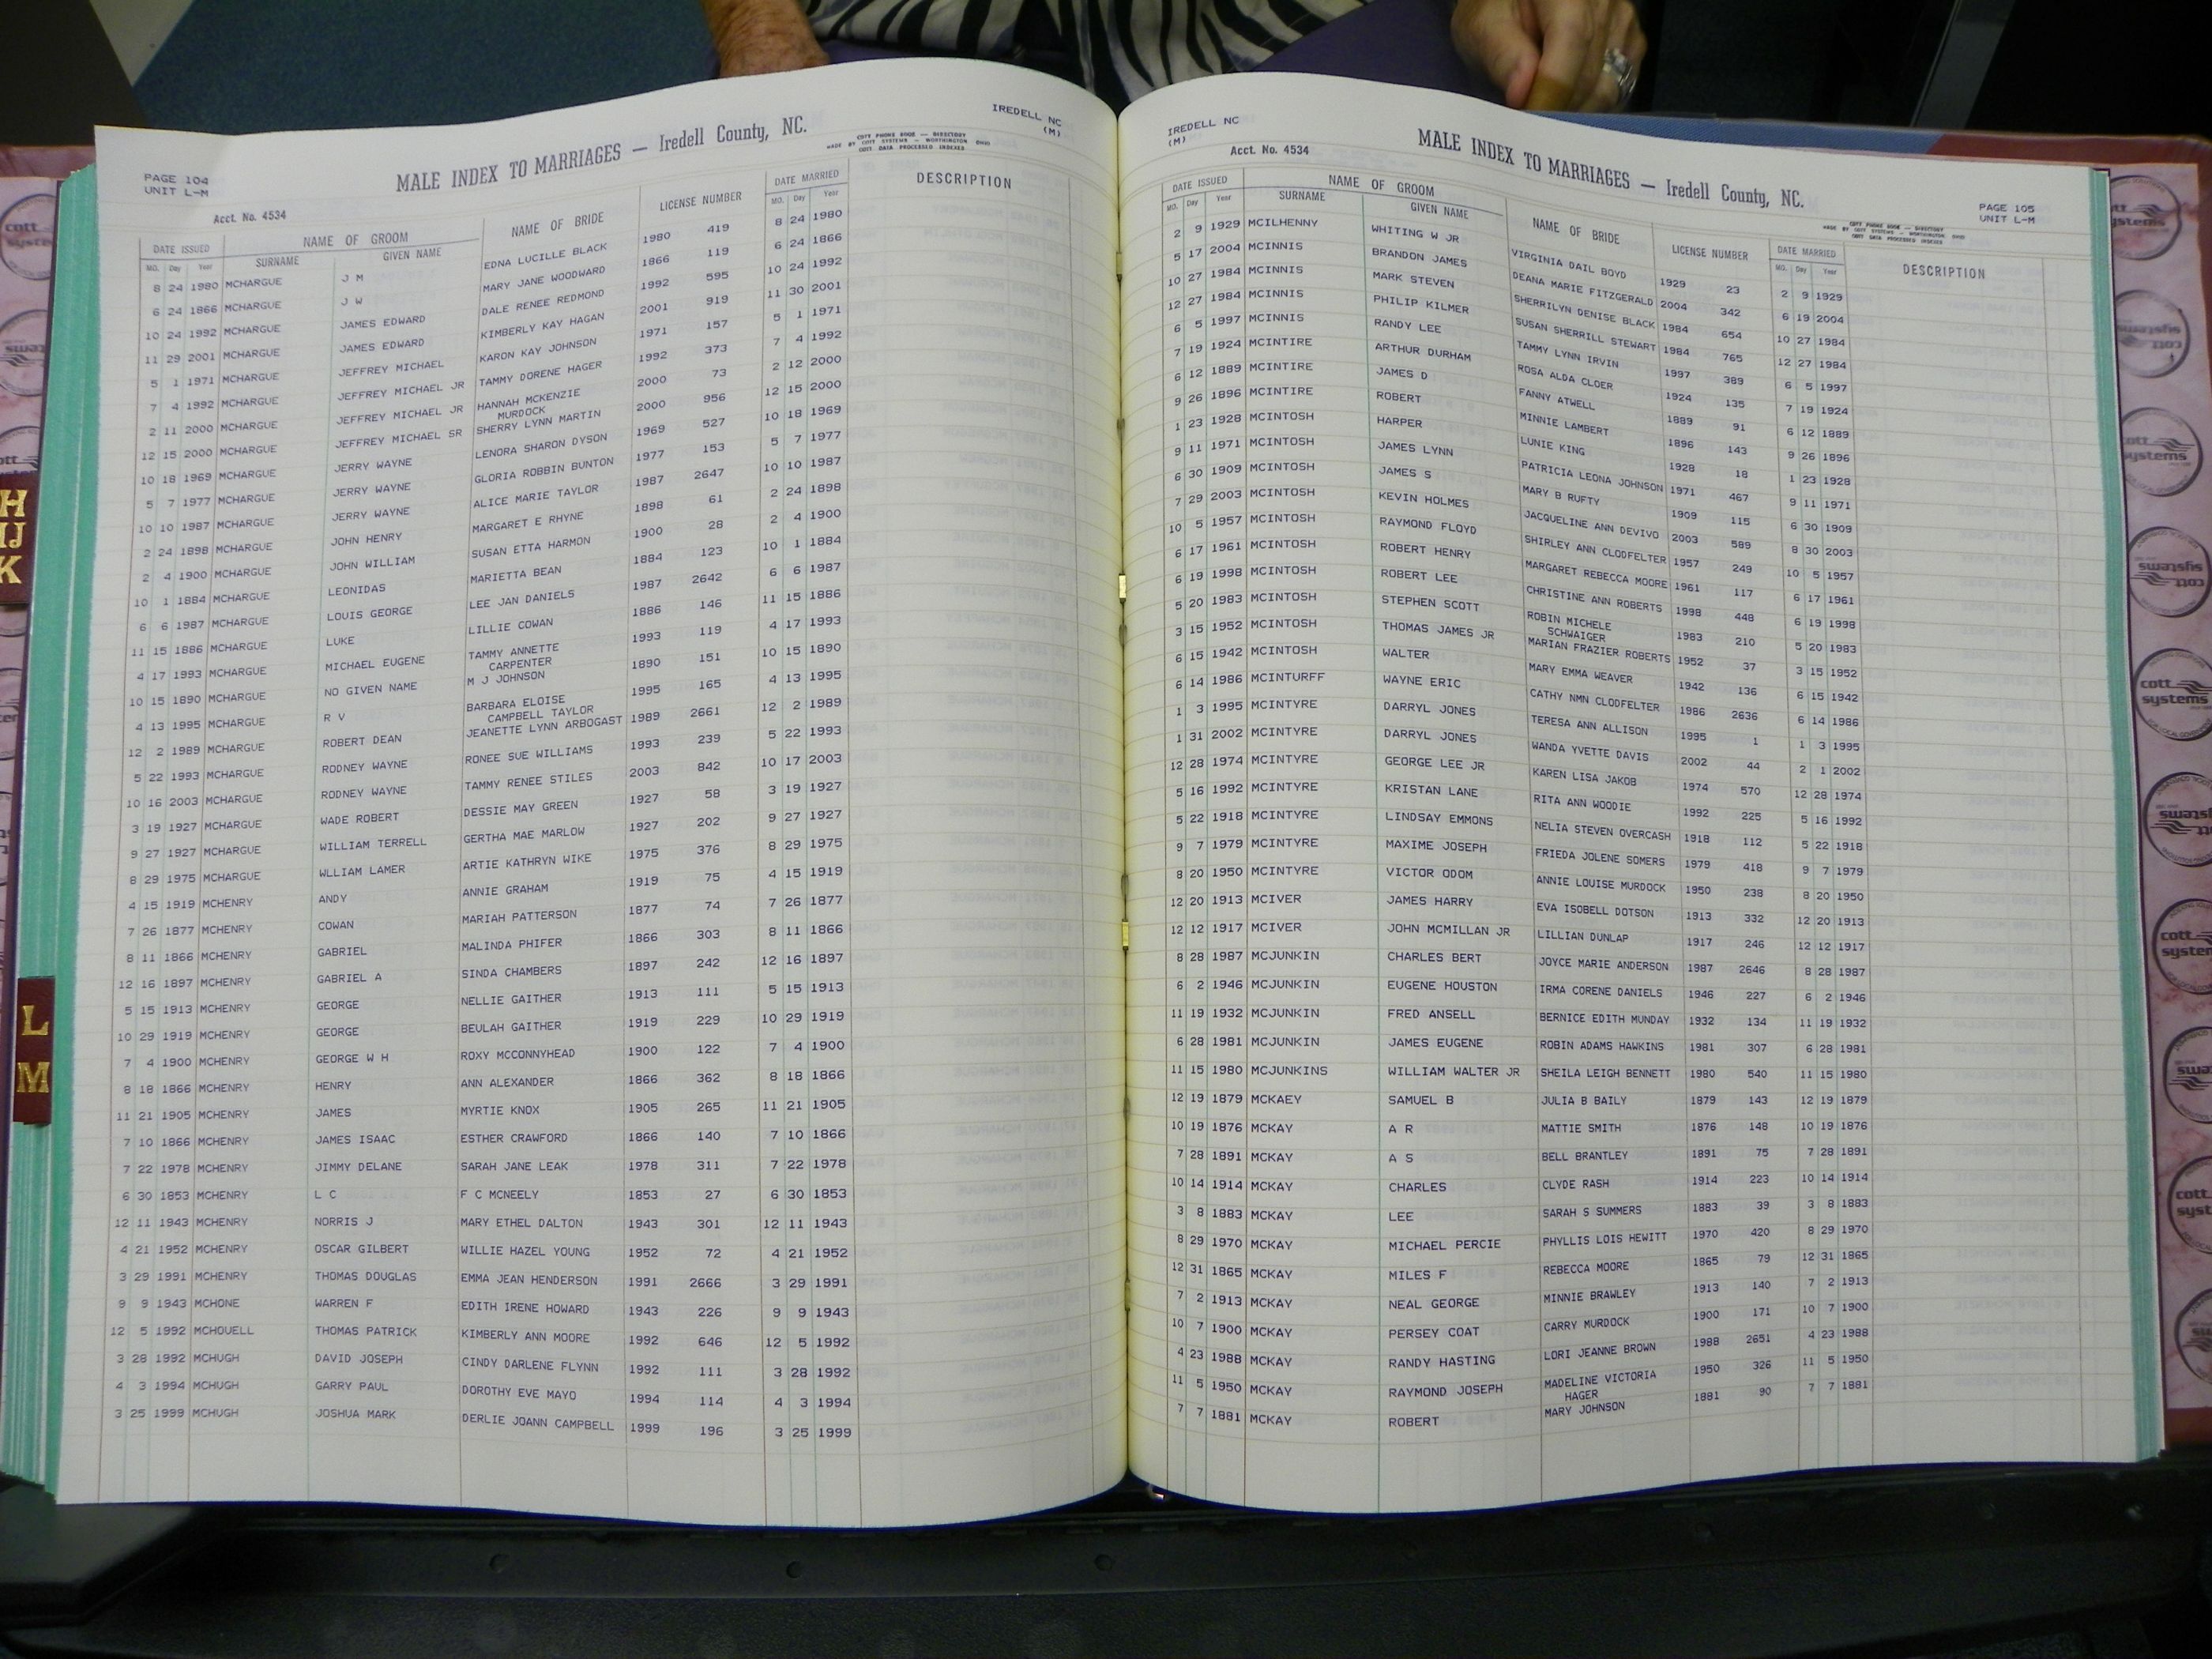 IREDELL NC
(M)
MALE INDEX TO MARRIAGES — Iredell County, NC.
COTT PHONE BOOK — DIRECTORY
MADE BY COTT SYSTEMS — WORTHINGTON OHIO
COTT DATA PROCESSED INDEXES
PAGE 104
UNIT L-M
Acct. No. 4534
DATE ISSUED NAME OF GROOM NAME OF BRIDE LICENSE NUMBER DATE MARRIED DESCRIPTION
MO. Day Year SURNAME GIVEN NAME MO. Day Year
8 24 1980 MCHARGUE J M EDNA LUCILLE BLACK 1980 419 8 24 1980
6 24 1866 MCHARGUE J W MARY JANE WOODWARD 1866 119 6 24 1866
10 24 1992 MCHARGUE JAMES EDWARD DALE RENEE REDMOND 1992 595 10 24 1992
11 29 2001 MCHARGUE JAMES EDWARD KIMBERLY KAY HAGAN 2001 919 11 30 2001
5 1 1971 MCHARGUE JEFFREY MICHAEL KARON KAY JOHNSON 1971 157 5 1 1971
7 4 1992 MCHARGUE JEFFREY MICHAEL JR TAMMY DORENE HAGER 1992 373 7 4 1992
2 11 2000 MCHARGUE JEFFREY MICHAEL JR HANNAH MCKENZIE 2000 73 2 12 2000
MURDOCK
12 15 2000 MCHARGUE JEFFREY MICHAEL SR SHERRY LYNN MARTIN 2000 956 12 15 2000
10 18 1969 MCHARGUE JERRY WAYNE LENORA SHARON DYSON 1969 527 10 18 1969
5 7 1977 MCHARGUE JERRY WAYNE GLORIA ROBBIN BUNTON 1977 153 5 7 1977
10 10 1987 MCHARGUE JERRY WAYNE ALICE MARIE TAYLOR 1987 2647 10 10 1987
2 24 1898 MCHARGUE JOHN HENRY MARGARET E RHYNE 1898 61 2 24 1898
2 4 1900 MCHARGUE JOHN WILLIAM SUSAN ETTA HARMON 1900 28 2 4 1900
10 1 1884 MCHARGUE LEONIDAS MARIETTA BEAN 1884 123 10 1 1884
6 6 1987 MCHARGUE LOUIS GEORGE LEE JAN DANIELS 1987 2642 6 6 1987
11 15 1886 MCHARGUE LUKE LILLIE COWAN 1886 146 11 15 1886
4 17 1993 MCHARGUE MICHAEL EUGENE TAMMY ANNETTE 1993 119 4 17 1993
CARPENTER
10 15 1890 MCHARGUE NO GIVEN NAME M J JOHNSON 1890 151 10 15 1890
4 13 1995 MCHARGUE R V BARBARA ELOISE 1995 165 4 13 1995
CAMPBELL TAYLOR
12 2 1989 MCHARGUE ROBERT DEAN JEANETTE LYNN ARBOGAST 1989 2661 12 2 1989
5 22 1993 MCHARGUE RODNEY WAYNE RONEE SUE WILLIAMS 1993 239 5 22 1993
10 16 2003 MCHARGUE RODNEY WAYNE TAMMY RENEE STILES 2003 842 10 17 2003
3 19 1927 MCHARGUE WADE ROBERT DESSIE MAY GREEN 1927 58 3 19 1927
9 27 1927 MCHARGUE WILLIAM TERRELL GERTHA MAE MARLOW 1927 202 9 27 1927
8 29 1975 MCHARGUE WLLIAM LAMER ARTIE KATHRYN WIKE 1975 376 8 29 1975
4 15 1919 MCHENRY ANDY ANNIE GRAHAM 1919 75 4 15 1919
7 26 1877 MCHENRY COWAN MARIAH PATTERSON 1877 74 7 26 1877
8 11 1866 MCHENRY GABRIEL MALINDA PHIFER 1866 303 8 11 1866
12 16 1897 MCHENRY GABRIEL A SINDA CHAMBERS 1897 242 12 16 1897
5 15 1913 MCHENRY GEORGE NELLIE GAITHER 1913 111 5 15 1913
10 29 1919 MCHENRY GEORGE BEULAH GAITHER 1919 229 10 29 1919
7 4 1900 MCHENRY GEORGE W H ROXY MCCONNYHEAD 1900 122 7 4 1900
8 18 1866 MCHENRY HENRY ANN ALEXANDER 1866 362 8 18 1866
11 21 1905 MCHENRY JAMES MYRTIE KNOX 1905 265 11 21 1905
7 10 1866 MCHENRY JAMES ISAAC ESTHER CRAWFORD 1866 140 7 10 1866
7 22 1978 MCHENRY JIMMY DELANE SARAH JANE LEAK 1978 311 7 22 1978
6 30 1853 MCHENRY L C F C MCNEELY 1853 27 6 30 1853
12 11 1943 MCHENRY NORRIS J MARY ETHEL DALTON 1943 301 12 11 1943
4 21 1952 MCHENRY OSCAR GILBERT WILLIE HAZEL YOUNG 1952 72 4 21 1952
3 29 1991 MCHENRY THOMAS DOUGLAS EMMA JEAN HENDERSON 1991 2666 3 29 1991
9 9 1943 MCHONE WARREN F EDITH IRENE HOWARD 1943 226 9 9 1943
12 5 1992 MCHOUELL THOMAS PATRICK KIMBERLY ANN MOORE 1992 646 12 5 1992
3 28 1992 MCHUGH DAVID JOSEPH CINDY DARLENE FLYNN 1992 111 3 28 1992
4 3 1994 MCHUGH GARRY PAUL DOROTHY EVE MAYO 1994 114 4 3 1994
3 25 1999 MCHUGH JOSHUA MARK DERLIE JOANN CAMPBELL 1999 196 3 25 1999
IREDELL NC
(M)
MALE INDEX TO MARRIAGES — Iredell County, NC.
COTT PHONE BOOK — DIRECTORY
MADE BY COTT SYSTEMS — WORTHINGTON OHIO
COTT DATA PROCESSED INDEXES
PAGE 105
UNIT L-M
Acct. No. 4534
DATE ISSUED NAME OF GROOM NAME OF BRIDE LICENSE NUMBER DATE MARRIED DESCRIPTION
MO. Day Year SURNAME GIVEN NAME MO. Day Year
2 9 1929 MCILHENNY WHITING W JR VIRGINIA DAIL BOYD 1929 23 2 9 1929
5 17 2004 MCINNIS BRANDON JAMES DEANA MARIE FITZGERALD 2004 342 6 19 2004
10 27 1984 MCINNIS MARK STEVEN SHERRILYN DENISE BLACK 1984 654 10 27 1984
12 27 1984 MCINNIS PHILIP KILMER SUSAN SHERRILL STEWART 1984 765 12 27 1984
6 5 1997 MCINNIS RANDY LEE TAMMY LYNN IRVIN 1997 389 6 5 1997
7 19 1924 MCINTIRE ARTHUR DURHAM ROSA ALDA CLOER 1924 135 7 19 1924
6 12 1889 MCINTIRE JAMES D FANNY ATWELL 1889 91 6 12 1889
9 26 1896 MCINTIRE ROBERT MINNIE LAMBERT 1896 143 9 26 1896
1 23 1928 MCINTOSH HARPER LUNIE KING 1928 18 1 23 1928
9 11 1971 MCINTOSH JAMES LYNN PATRICIA LEONA JOHNSON 1971 467 9 11 1971
6 30 1909 MCINTOSH JAMES S MARY B RUFTY 1909 115 6 30 1909
7 29 2003 MCINTOSH KEVIN HOLMES JACQUELINE ANN DEVIVO 2003 589 8 30 2003
10 5 1957 MCINTOSH RAYMOND FLOYD SHIRLEY ANN CLODFELTER 1957 249 10 5 1957
6 17 1961 MCINTOSH ROBERT HENRY MARGARET REBECCA MOORE 1961 117 6 17 1961
6 19 1998 MCINTOSH ROBERT LEE CHRISTINE ANN ROBERTS 1998 448 6 19 1998
5 20 1983 MCINTOSH STEPHEN SCOTT ROBIN MICHELE 1983 210 5 20 1983
SCHWAIGER
3 15 1952 MCINTOSH THOMAS JAMES JR MARIAN FRAZIER ROBERTS 1952 37 3 15 1952
6 15 1942 MCINTOSH WALTER MARY EMMA WEAVER 1942 136 6 15 1942
6 14 1986 MCINTURFF WAYNE ERIC CATHY NMN CLODFELTER 1986 2636 6 14 1986
1 3 1995 MCINTYRE DARRYL JONES TERESA ANN ALLISON 1995 1 1 3 1995
1 31 2002 MCINTYRE DARRYL JONES WANDA YVETTE DAVIS 2002 44 2 1 2002
12 28 1974 MCINTYRE GEORGE LEE JR KAREN LISA JAKOB 1974 570 12 28 1974
5 16 1992 MCINTYRE KRISTAN LANE RITA ANN WOODIE 1992 225 5 16 1992
5 22 1918 MCINTYRE LINDSAY EMMONS NELIA STEVEN OVERCASH 1918 112 5 22 1918
9 7 1979 MCINTYRE MAXIME JOSEPH FRIEDA JOLENE SOMERS 1979 418 9 7 1979
8 20 1950 MCINTYRE VICTOR ODOM ANNIE LOUISE MURDOCK 1950 238 8 20 1950
12 20 1913 MCIVER JAMES HARRY EVA ISOBELL DOTSON 1913 332 12 20 1913
12 12 1917 MCIVER JOHN MCMILLAN JR LILLIAN DUNLAP 1917 246 12 12 1917
8 28 1987 MCJUNKIN CHARLES BERT JOYCE MARIE ANDERSON 1987 2646 8 28 1987
6 2 1946 MCJUNKIN EUGENE HOUSTON IRMA CORENE DANIELS 1946 227 6 2 1946
11 19 1932 MCJUNKIN FRED ANSELL BERNICE EDITH MUNDAY 1932 134 11 19 1932
6 28 1981 MCJUNKIN JAMES EUGENE ROBIN ADAMS HAWKINS 1981 307 6 28 1981
11 15 1980 MCJUNKINS WILLIAM WALTER JR SHEILA LEIGH BENNETT 1980 540 11 15 1980
12 19 1879 MCKAEY SAMUEL B JULIA B BAILY 1879 143 12 19 1879
10 19 1876 MCKAY A R MATTIE SMITH 1876 148 10 19 1876
7 28 1891 MCKAY A S BELL BRANTLEY 1891 75 7 28 1891
10 14 1914 MCKAY CHARLES CLYDE RASH 1914 223 10 14 1914
3 8 1883 MCKAY LEE SARAH S SUMMERS 1883 39 3 8 1883
8 29 1970 MCKAY MICHAEL PERCIE PHYLLIS LOIS HEWITT 1970 420 8 29 1970
12 31 1865 MCKAY MILES F REBECCA MOORE 1865 79 12 31 1865
7 2 1913 MCKAY NEAL GEORGE MINNIE BRAWLEY 1913 140 7 2 1913
10 7 1900 MCKAY PERSEY COAT CARRY MURDOCK 1900 171 10 7 1900
4 23 1988 MCKAY RANDY HASTING LORI JEANNE BROWN 1988 2651 4 23 1988
11 5 1950 MCKAY RAYMOND JOSEPH MADELINE VICTORIA 1950 326 11 5 1950
HAGER
7 7 1881 MCKAY ROBERT MARY JOHNSON 1881 90 7 7 1881
H
IJ
K
L
M
cott
systems